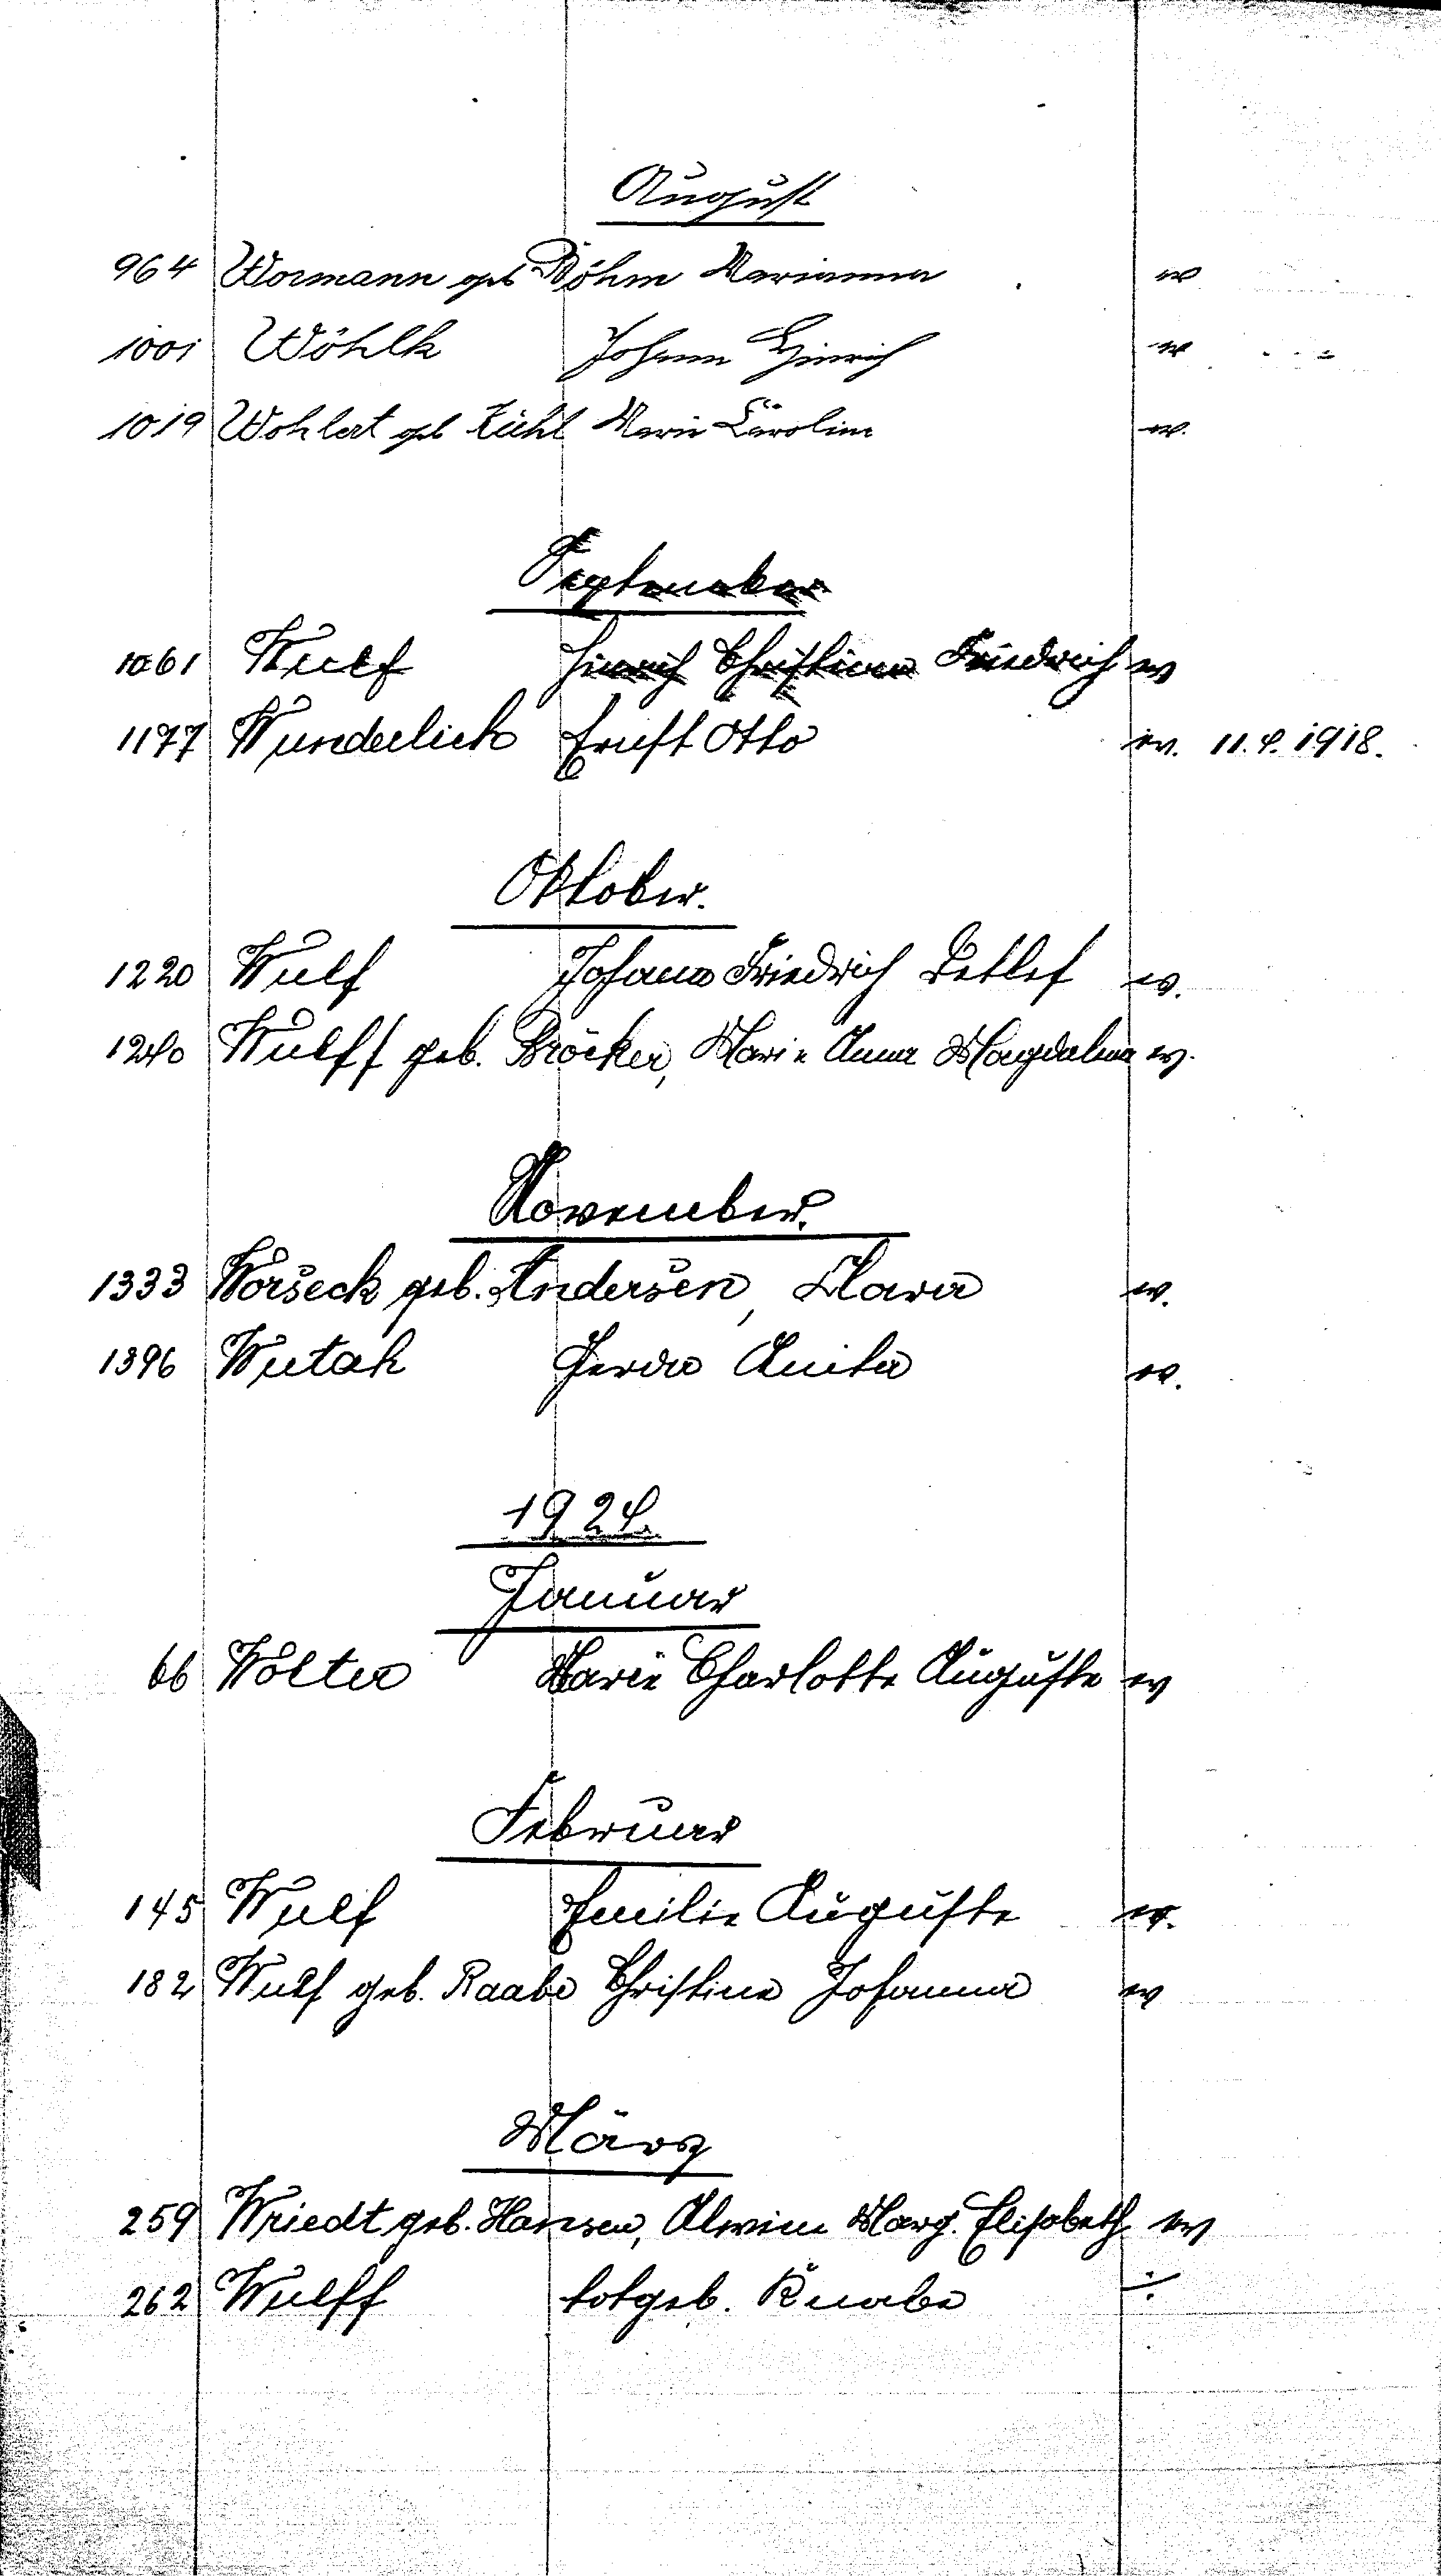 August
964 Wormann geb Böhm Marianna w
1001 Wöhlk Johann Hinrich w
1019 Wohlert geb Kühl Marie Caroline w.
September
1061 Wulf Hinrich Christian Friedrich w
1177 Wunderlich Ernst Otto w. 11.4.1918.
Oktober.
1220 Wulf Johann Friedrich Detlef w.
1240 Wulff geb. Bröcker, Marie Anna Magdalena w.
November.
1333 Worseck geb. Andersen, Klara w.
1396 Wutak Gerda Anita w.
1924.
Januar
66 Wölter Marie Charlotte Auguste w
Februar
145 Wulf Emilie Auguste w.
182 Wulf geb. Raabe Christine Johanna w
März
259 Wriedt geb. Hansen, Alwine Marg. Elisabeth w
262 Wulff totgeb. Knabe ÷